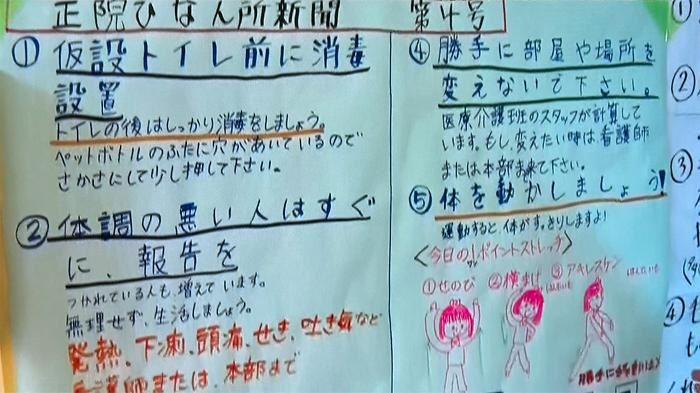 正院ひなん所新聞 第4号
① 仮設トイレ前に消毒
設置
トイレの後はしっかり消毒をしましょう。
ペットボトルのふたに穴があいているので
さかさにして少し押して下さい。
② 体調の悪い人はすぐ
に、報告を
つかれている人も、増えています。
無理せず、生活しましょう。
発熱、下痢、頭痛、せき、吐き気など
看護師または、本部まで
④ 勝手に部屋や場所を
変えないで下さい。
医療介護班のスタッフが計算して
います。もし、変えたい時は、看護師
または本部まで来て下さい。
⑤ 体を動かしましょう!
運動すると、体がすっきりしますよ!
<今日の1ポイントストレッチ>
①せのび ②横まげ ③アキレスケン
①
②
③
④